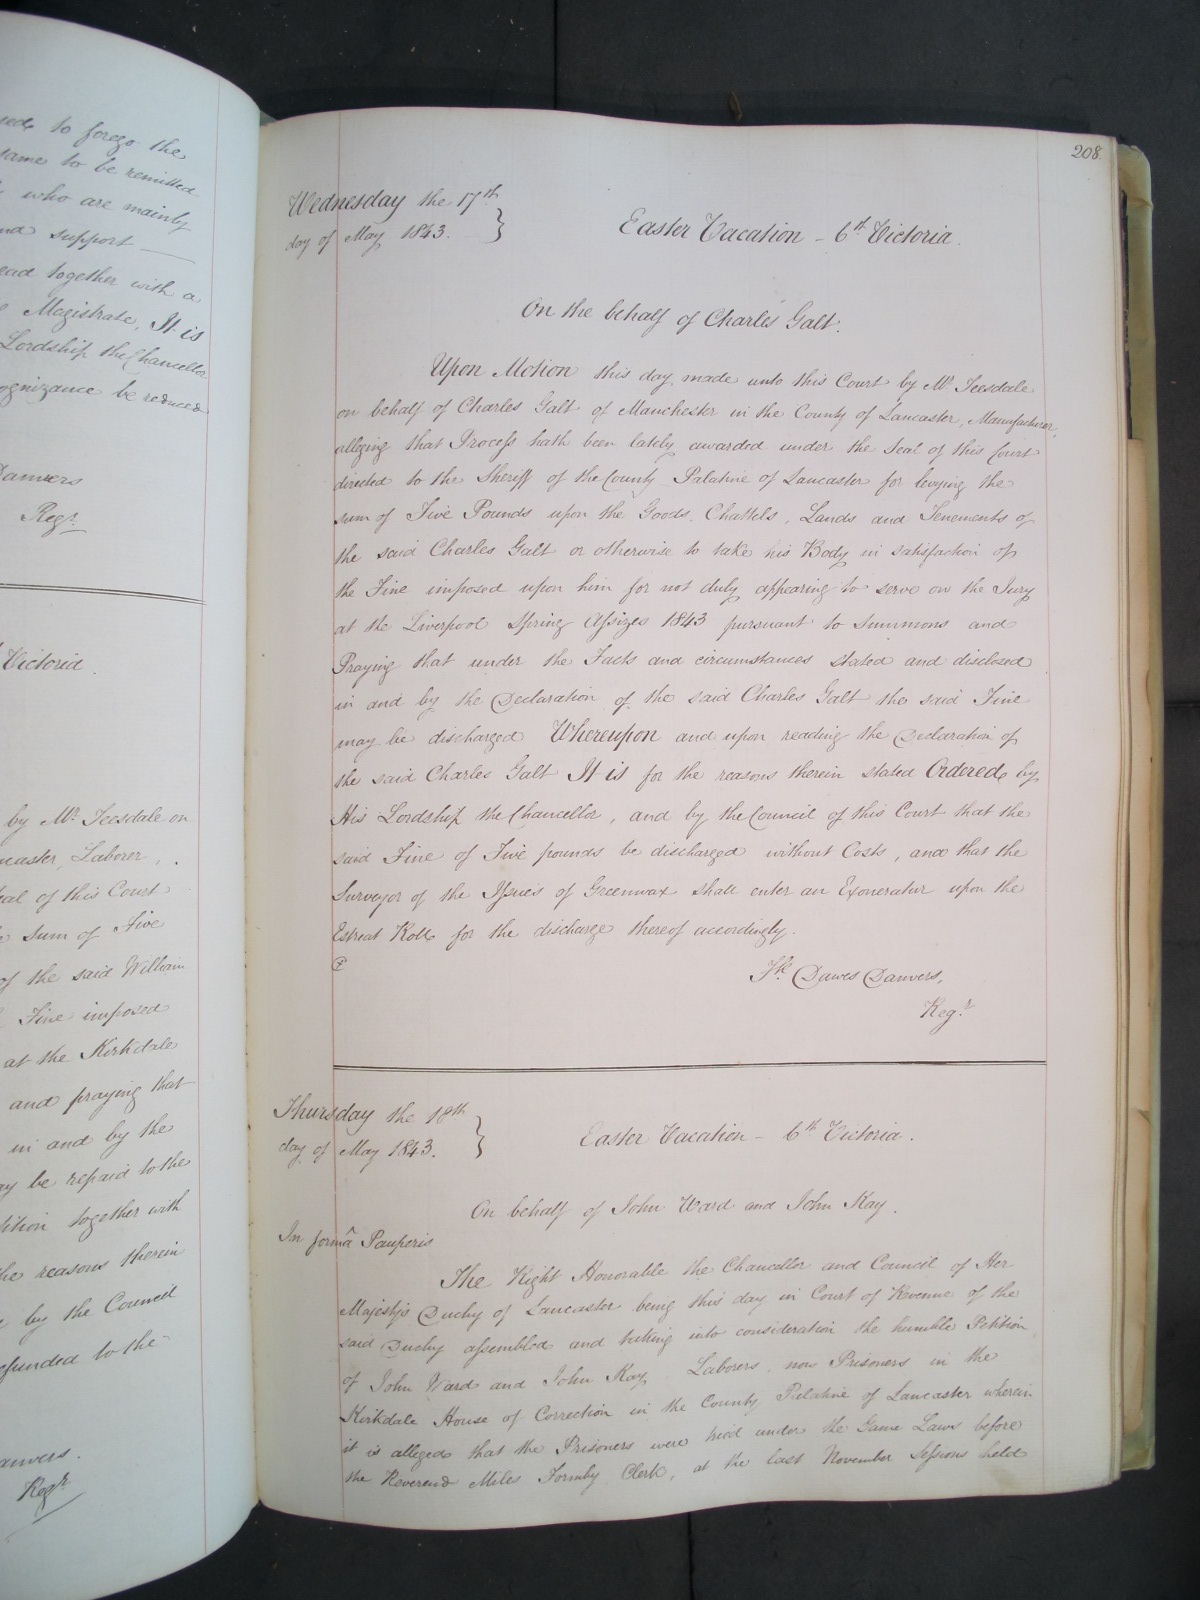 sed to forego the
same to be remitted
who are mainly
nd support
ead together with a
Magistrate, It is
Lordship the Chancellor
ognizance be reduced
Danvers
Regr.
Victoria.
by Mr. Teesdale on
ncaster, Laborer,
eal of this Court
sum of Five
of the said William
Fine imposed
at the Kirkdale
and praying that
in and by the
ay be repaid to the
tition together with
the reasons therein
by the Council
efunded to the
anvers.
Regr
208.
Wednesday the 17th
day of May 1843. }
Easter Vacation - 6th Victoria.
On the behalf of Charles Galt.
Upon Motion this day made unto this Court by Mr. Teesdale
on behalf of Charles Galt of Manchester in the County of Lancaster, Manufacturer,
alleging that Process hath been lately awarded under the Seal of this Court
directed to the Sheriff of the County Palatine of Lancaster for levying the
sum of Five Pounds upon the Goods, Chattels, Lands and Tenements of
the said Charles Galt or otherwise to take his Body in satisfaction of
the Fine imposed upon him for not duly appearing to serve on the Jury
at the Liverpool Spring Assizes 1843 pursuant to Summons and
Praying that under the Facts and circumstances stated and disclosed
in and by the Declaration of the said Charles Galt the said Fine
may be discharged Whereupon and upon reading the Declaration of
the said Charles Galt It is for the reasons therein stated Ordered by
His Lordship the Chancellor, and by the Council of this Court that the
said Fine of Five pounds be discharged without Costs, and that the
Surveyor of the Issues of Greenwax shall enter an Exoneratur upon the
Estreat Roll for the discharge thereof accordingly.
Fk. Dawes Danvers,
Regr.
Thursday the 18th
day of May 1843. }
Easter Vacation - 6th Victoria.
On behalf of John Ward and John Kay.
In formâ Pauperis
The Right Honorable the Chancellor and Council of Her
Majesty's Duchy of Lancaster being this day in Court of Revenue of the
said Duchy assembled and taking into consideration the humble Petition
of John Ward and John Kay Laborers, now Prisoners in the
Kirkdale House of Correction in the County Palatine of Lancaster wherein
it is alleged that the Prisoners were tried under the Game Laws before
the Reverend Miles Formby Clerk, at the last November Sessions held